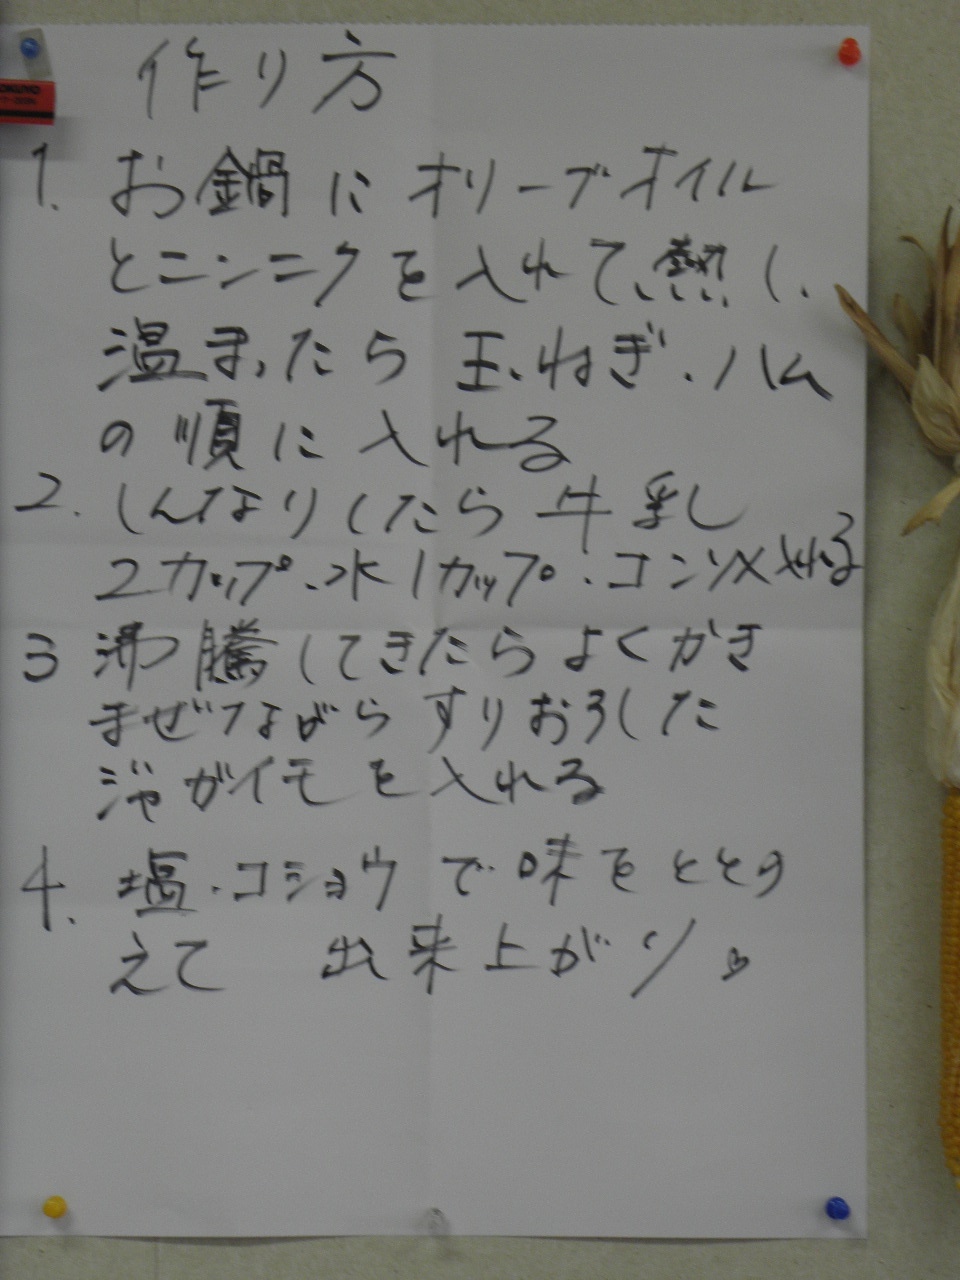 KOKUYO
作り方
1. お鍋にオリーブオイル
とニンニクを入れて熱し、
温まったら玉ねぎ・ハム
の順に入れる
2. しんなりしたら牛乳
2カップ・水1カップ・コンソメ入れる
3 沸騰してきたらよくかき
まぜながらすりおろした
ジャガイモを入れる
4. 塩・コショウで味をととの
えて 出来上がり♡